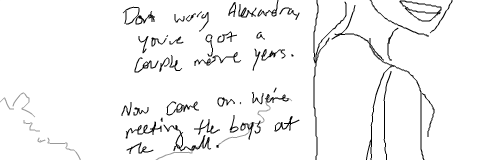 Don't worry Alexandra,
you've got a
couple more years.
Now come on. We're
meeting the boys at
the mall.